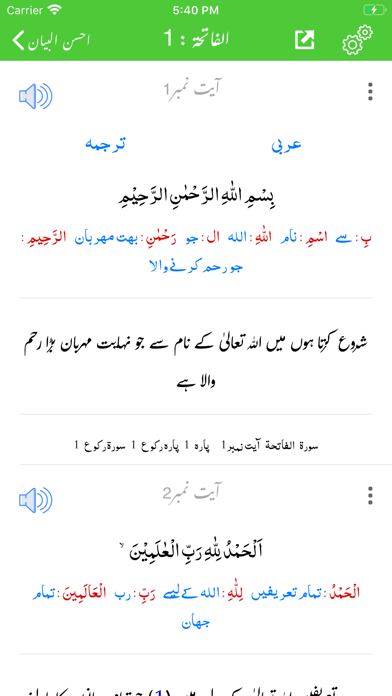 Carrier 5:40 PM
احسن البیان الفاتحۃ : 1
آیت نمبر1
عربی ترجمہ
بِسْمِ اللّٰهِ الرَّحْمٰنِ الرَّحِيْمِ
بِ: سے اسْمِ: نام اللّٰهِ: الله ال: جو رَحْمٰنِ: بهت مهربان الرَّحِيمِ:
جو رحم کرنے والا
شروع کرتا ہوں میں اللہ تعالیٰ کے نام سے جو نہایت مہربان بڑا رحم
والا ہے
سورة الفاتحة آیت نمبر1 پارہ 1 پارہ رکوع 1 سورة رکوع 1
آیت نمبر2
اَلْحَمْدُ لِلّٰهِ رَبِّ الْعٰلَمِيْنَ ۙ
الْحَمْدُ: تمام تعریفیں لِلّٰهِ: الله کے لیے رَبِّ: رب الْعَالَمِينَ: تمام
جهان